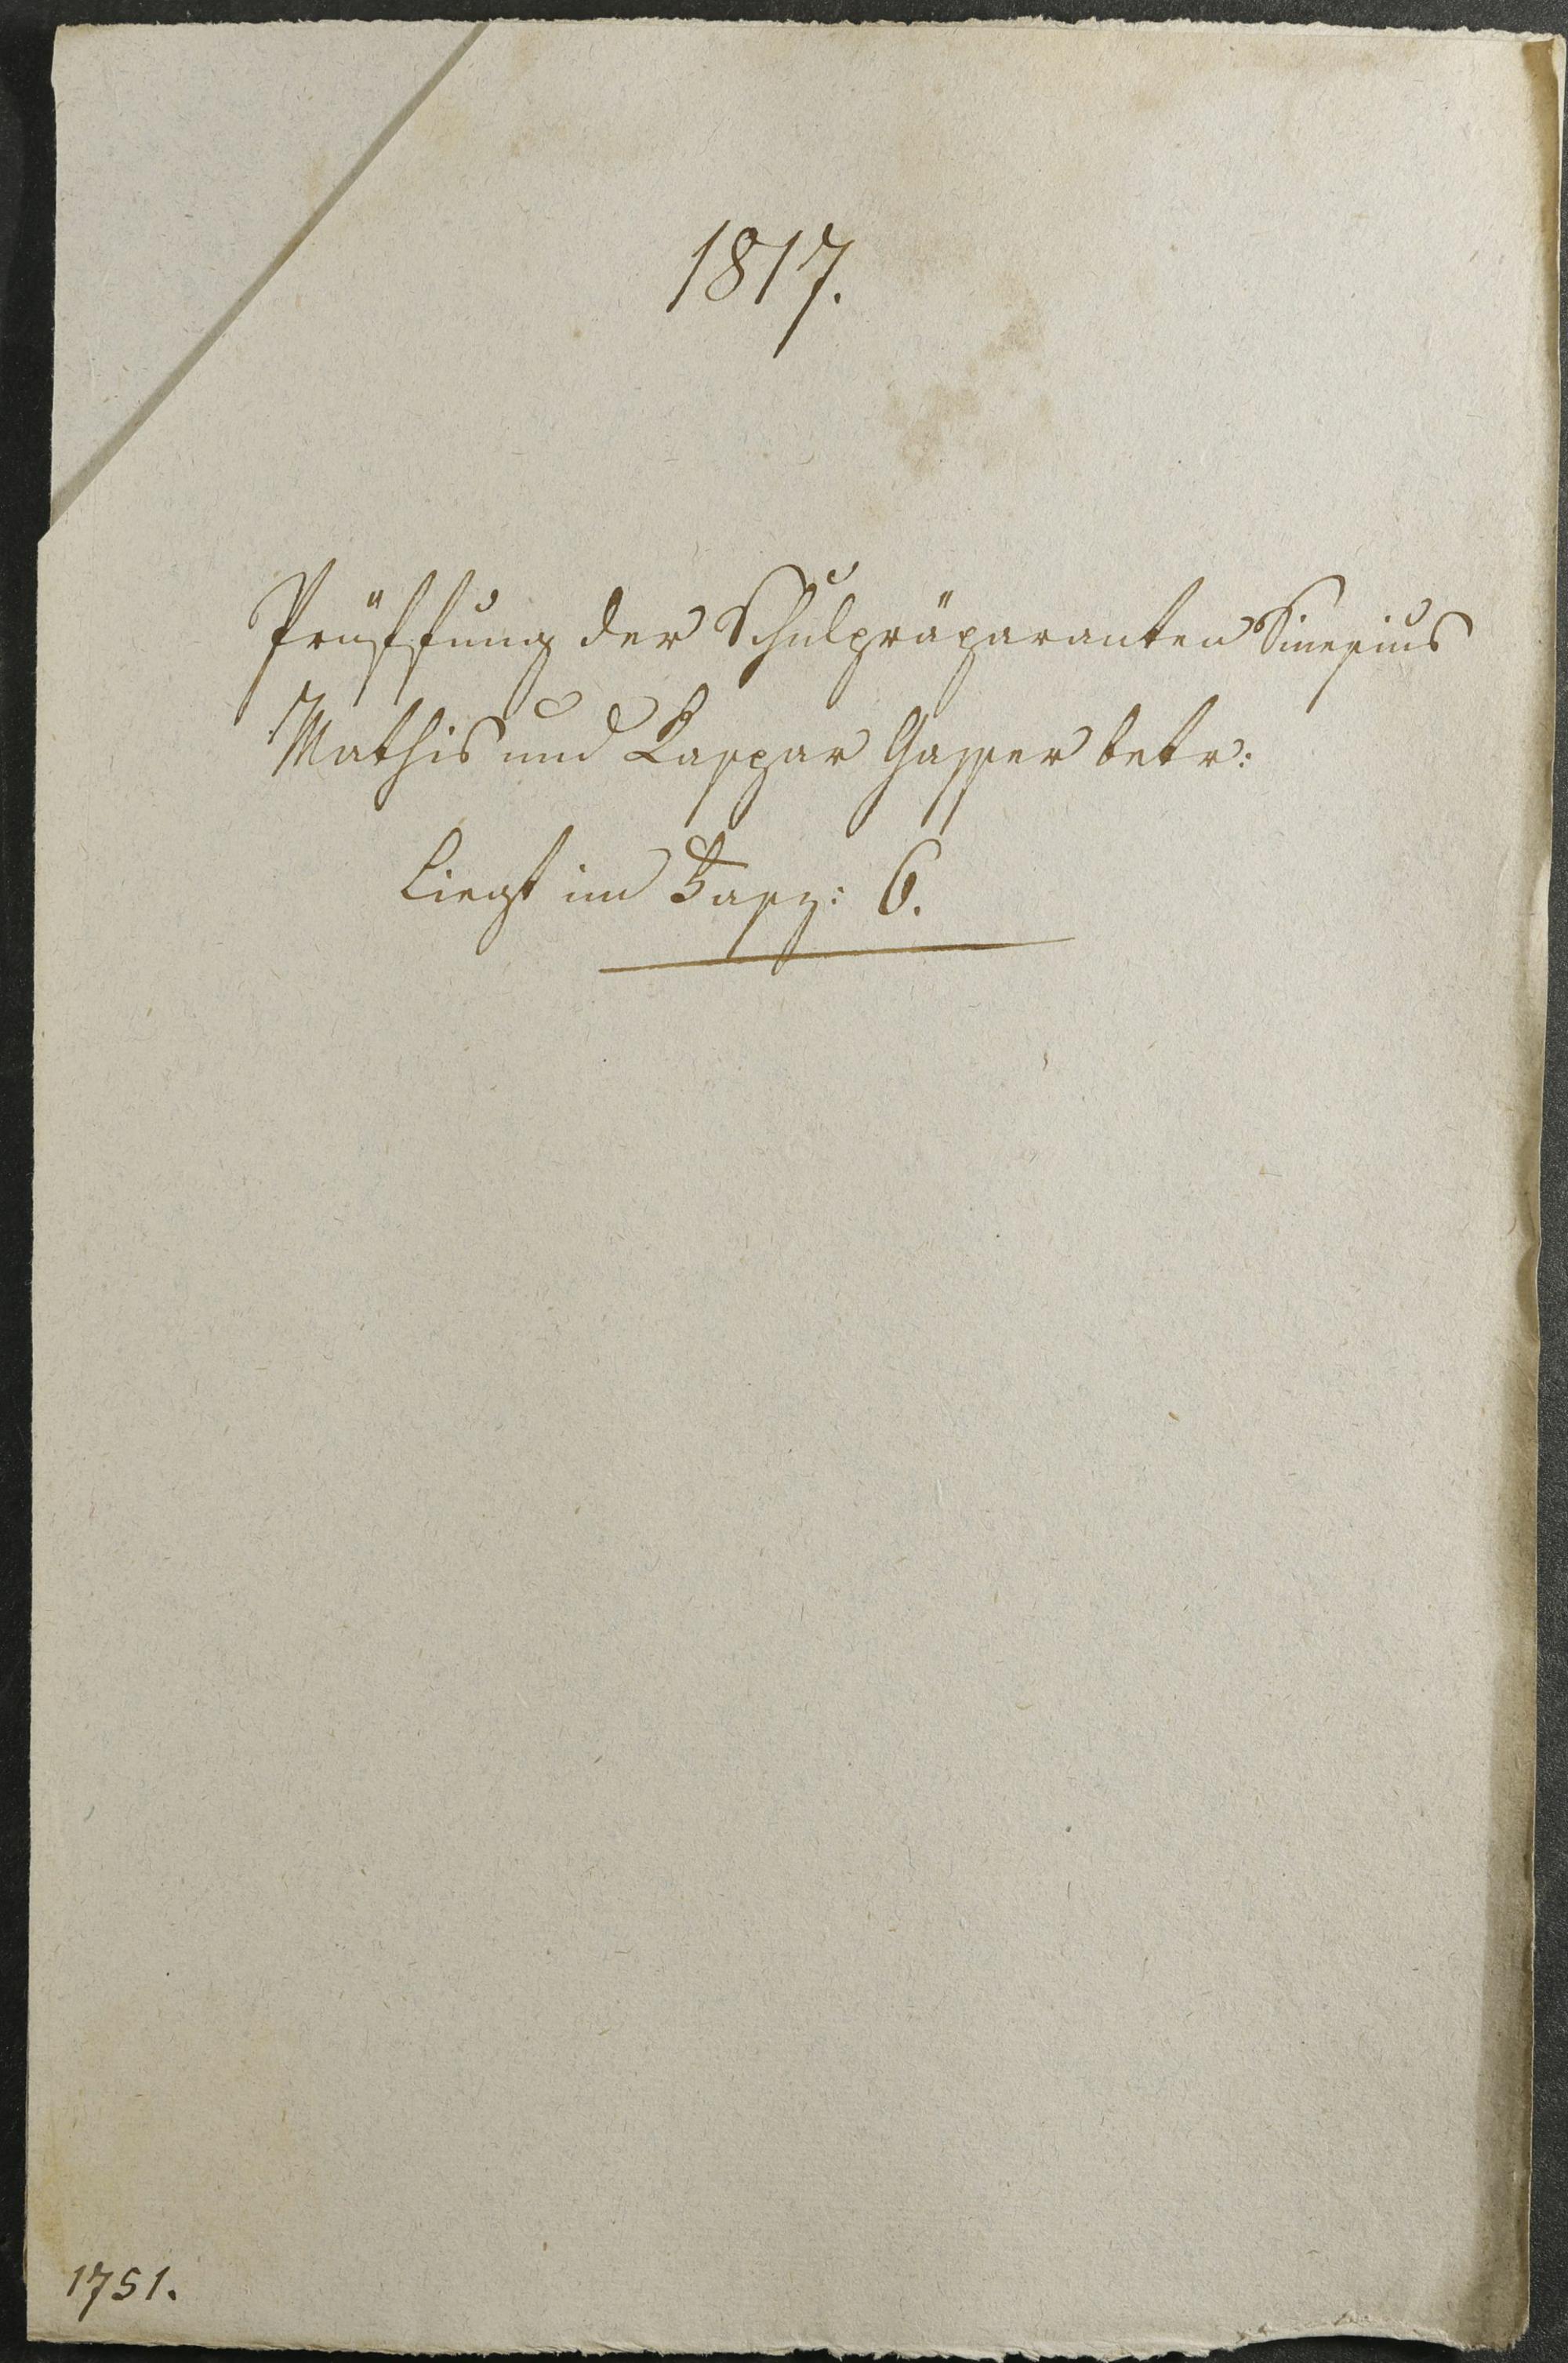 1817.
Prüffung der Schulpräparanten Sinesius
Mathis und Kaspar Gasser betr:
Liegt im Fasz: 6.
1751.